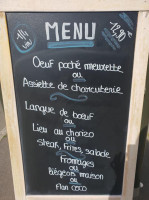 MENU
13,90
Oeuf poché meurette
ou
Assiette de charcuterie
Langue de bœuf
ou
Lieu au chorizo
ou
Steak, Frites, salade
Fromages
ou
Liégeois maison
ou
Flan coco